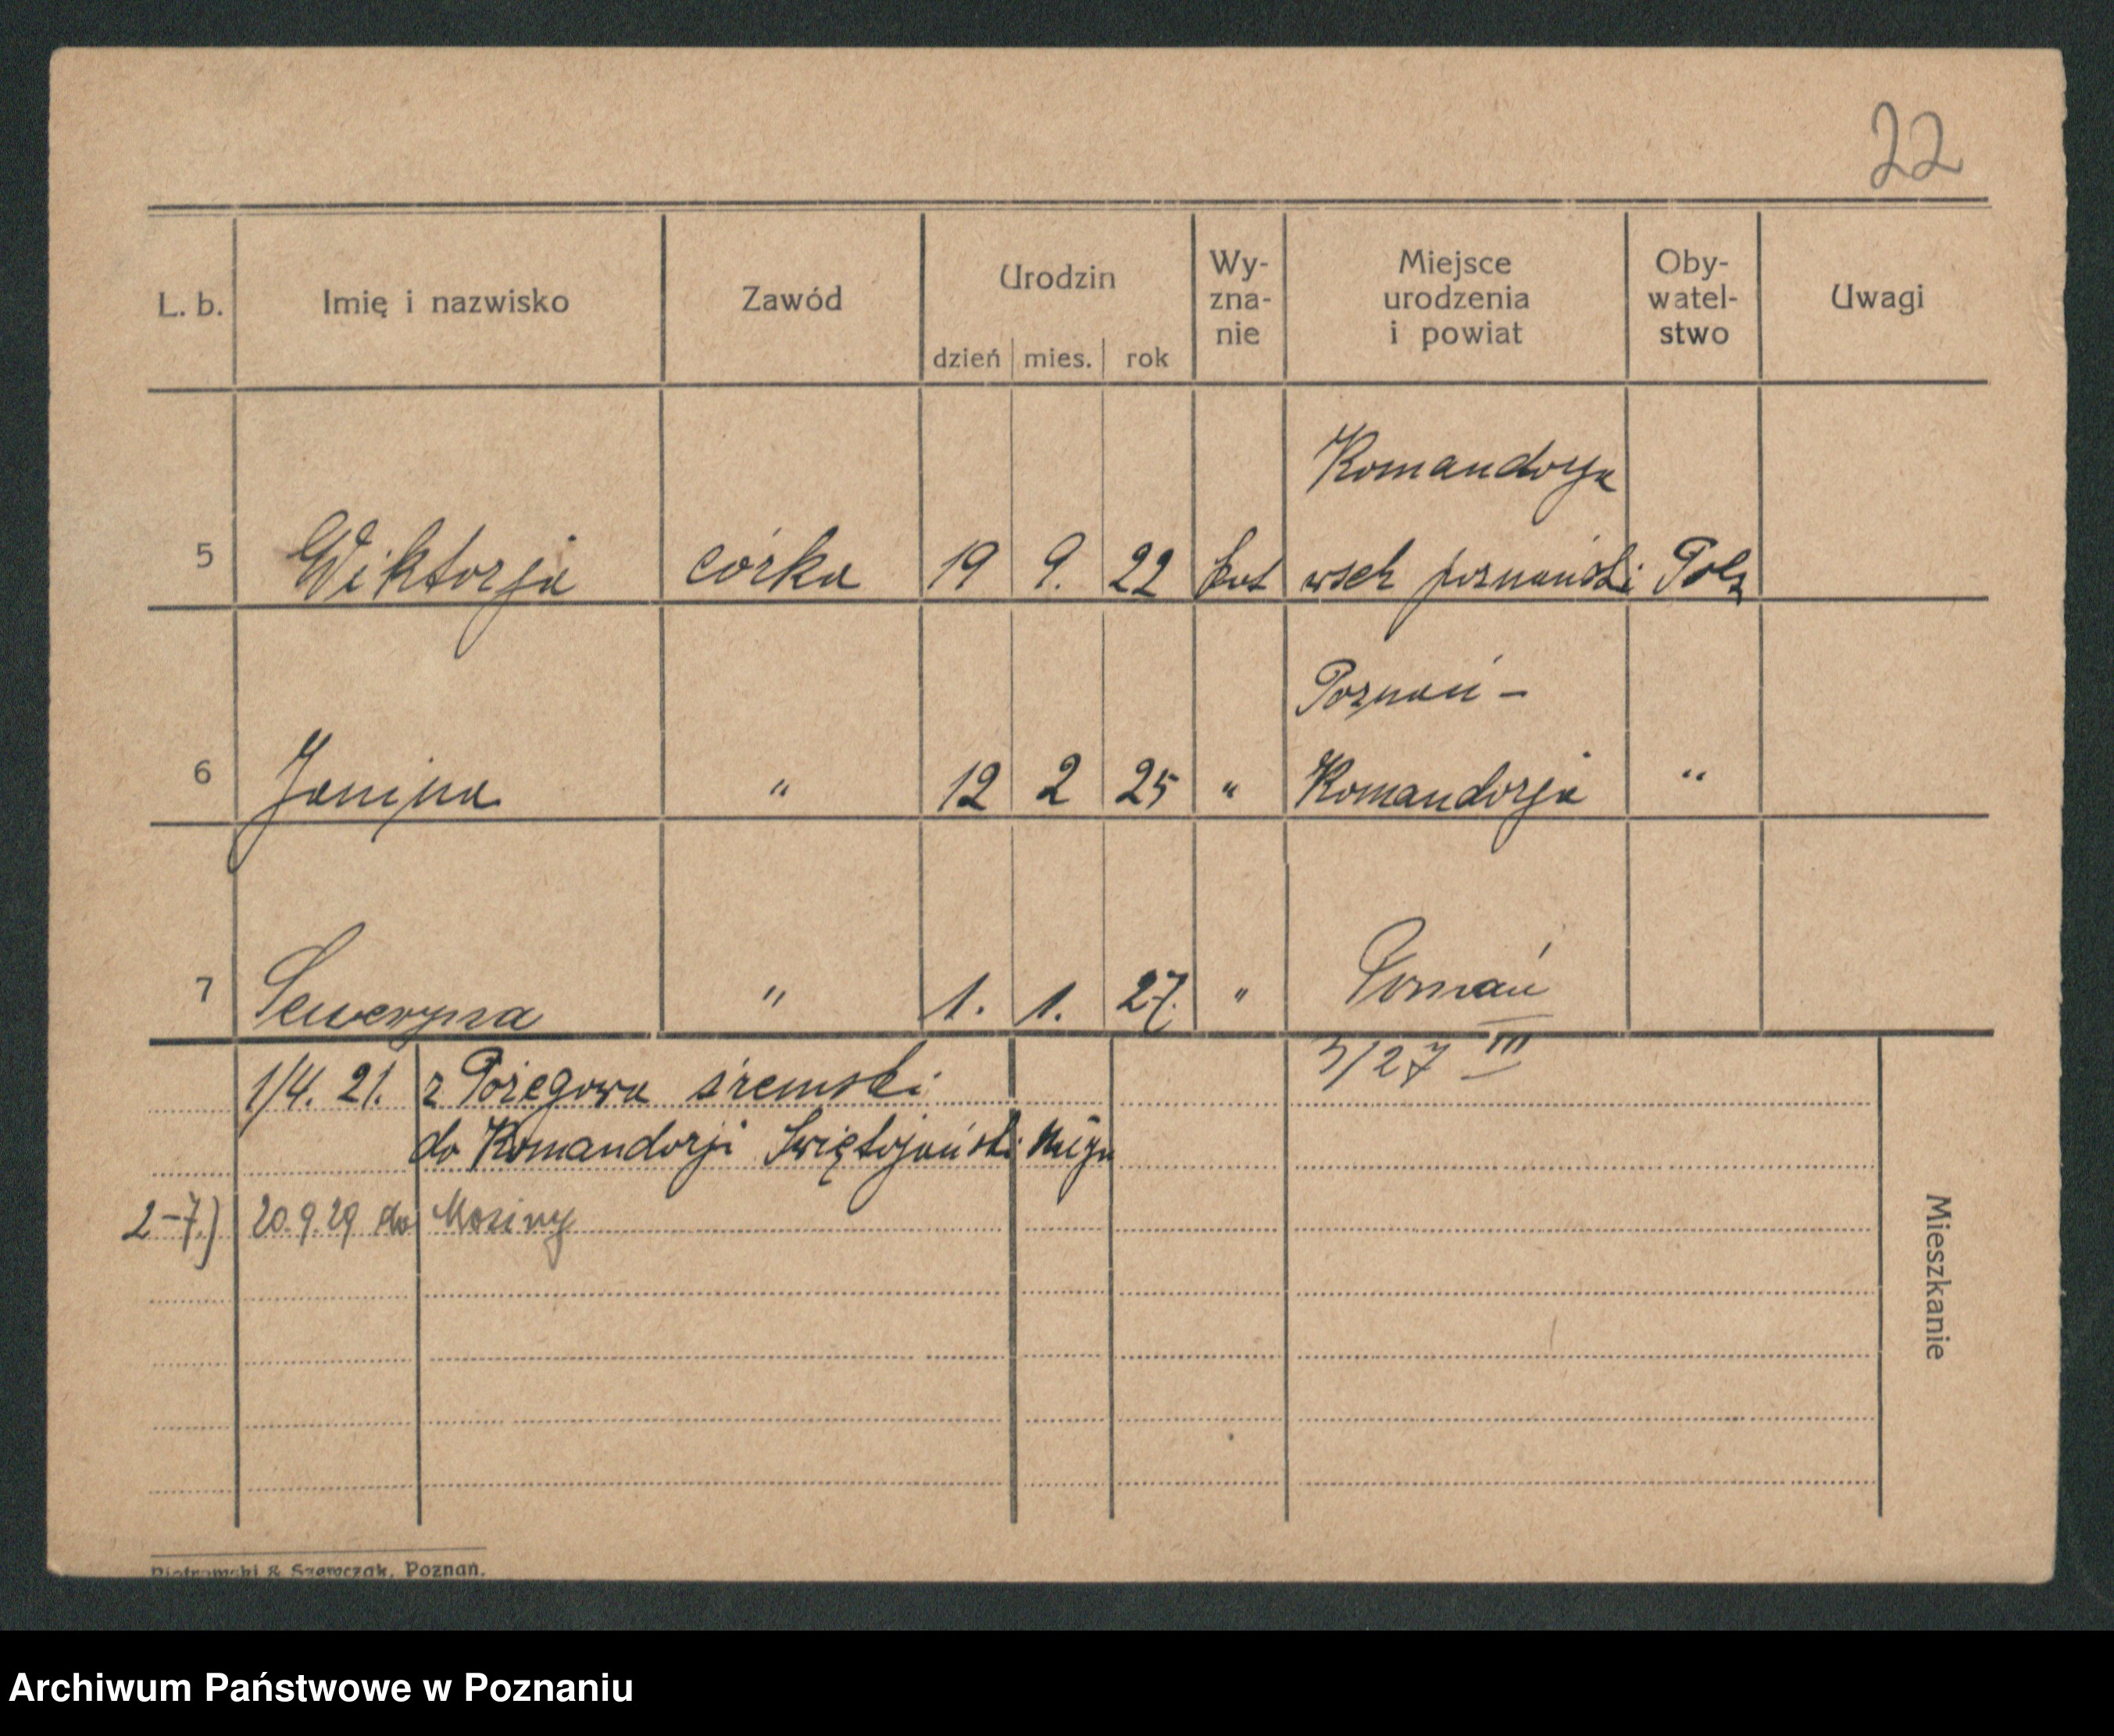 22
L. b. Imię i nazwisko Zawód Urodzin dzień mies. rok Wy-zna-nie Miejsce urodzenia i powiat Oby-watel-stwo Uwagi
Komandorja
5 Wiktorja córka 19 9. 22 kat wsch poznański Pols
Poznań -
6 Janina " 12 2 25 " Komandorja "
7 Seweryna " 1. 1. 27. " Poznań
3/27 III
1/4. 21. z Pożegowa śremski
do Komandorji Świętojański
2-7.) 20.9.29 do Mosiny
Mieszkanie
Piotrowski & Szewczak, Poznań.
Archiwum Państwowe w Poznaniu